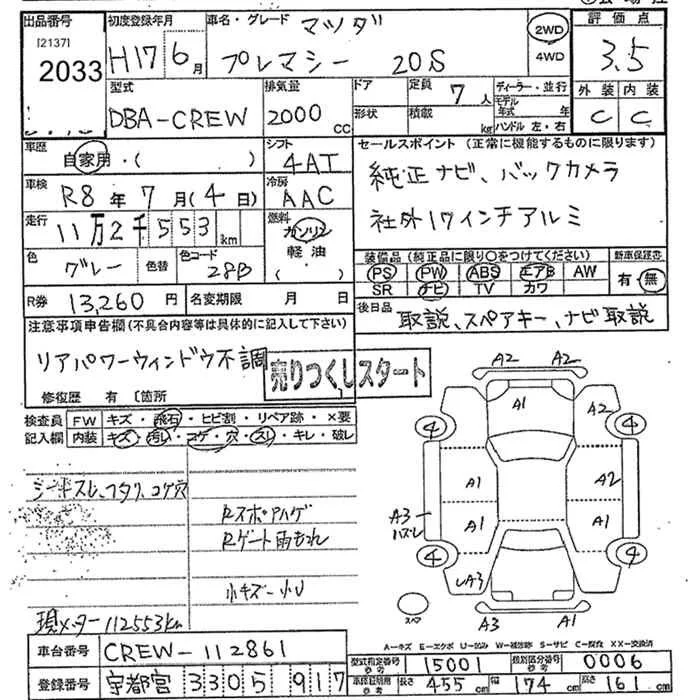 出品番号 [2137] 2033
初度登録年月 H17 6月
車名・グレード マツダ プレマシー 20S
2WD 4WD
評価点 3.5
外装 内装 C C
型式 DBA-CREW
排気量 2000 CC
ドア 形状
定員 7人
積載 kg
ディーラー・並行
モデル年式 年
ハンドル 左・右
車歴 自家用・( )
シフト 4AT
セールスポイント (正常に機能するものに限ります)
純正ナビ、バックカメラ
社外17インチアルミ
車検 R8年7月(4日)
冷房 AAC
走行 11万2千553km
燃料 ガソリン 軽油 ( )
色 グレー 色替 色コード 28B
装備品 (純正品に限り○をつけてください) 新車保証書
PS PW ABS エアB AW 有・無
SR ナビ TV カワ
R券 13,260円 名変期限 月 日
後日品 取説、スペアキー、ナビ取説
注意事項申告欄(不具合内容等は具体的に記入して下さい)
リアパワーウィンドウ不調
売りつくしスタート
修復歴 有〔箇所
検査員記入欄 FW キズ・飛石・ヒビ割・リペア跡・×要
内装 キズ・汚れ・コゲ・穴・スレ・キレ・破レ
シートスレ、コゲ穴
Rスポ Aハゲ
Rゲート雨もれ
小キズ-小U
現メーター112553km
A2 A2
A1 A2
④ ④
A1 A2
A1 A1
A3 ハズレ
④ ④
A3
A3 A1
スペア
A-キズ E-エクボ U-凹み W-補修跡 S-サビ C-腐食 XX-交換済
車台番号 CREW-112861
型式指定番号 参考 15001 類別区分番号 参考 0006
登録番号 宇都宮 330 5 917
車両諸元用 参考 長さ 455cm 幅 174cm 高さ 161cm